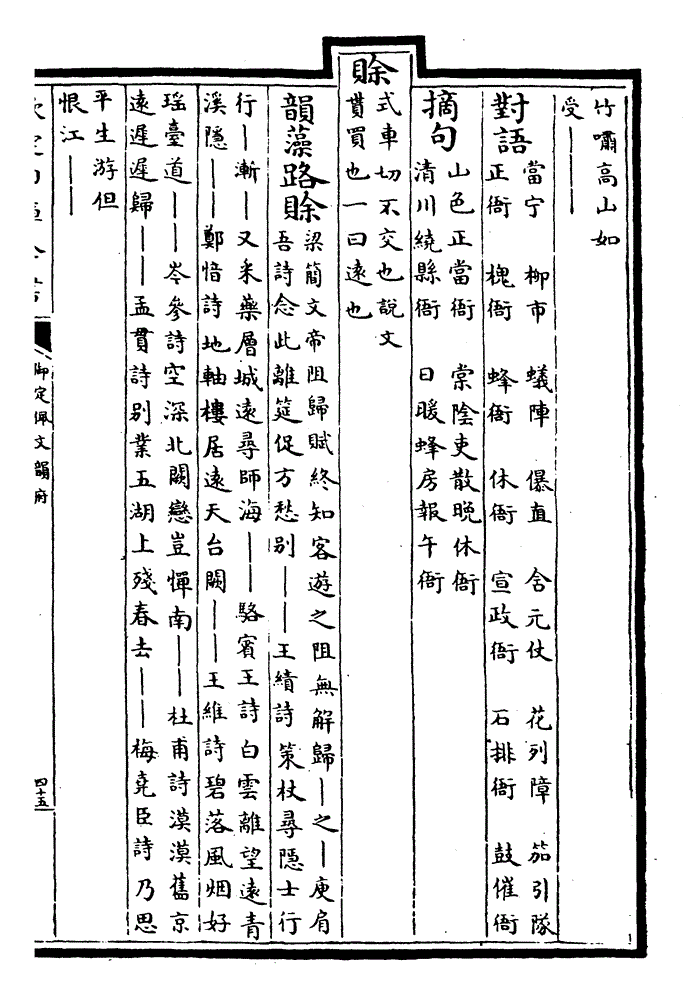 竹嘯高山如
受――
對語
當宁 柳市 蟻陣 儤直 含元仗 花列障 笳引隊
正衙 槐衙 蜂衙 休衙 宣政衙 石排衙 鼓催衙
摘句
山色正當衙 棠陰吏散晚休衙
清川繞縣衙 日暖蜂房報午衙
賖
式車切不交也說文
貰買也一曰遠也
韻藻路賖
梁簡文帝阻歸賦終知客遊之阻無解歸―之―庾肩
吾詩念此離筵促方愁别――王績詩策杖尋隱士行
行―漸―又采藥層城遠尋師海――駱賓王詩白雲離望遠青
溪隱――鄭愔詩地軸樓居遠天台闕――王維詩碧落風烟好
瑶臺道――岑參詩空深北闕戀豈憚南――杜甫詩漠漠舊京
遠遲遲歸――孟貫詩别業五湖上殘春去――梅堯臣詩乃思
平生游但
恨江――
御定佩文韻府
四十五